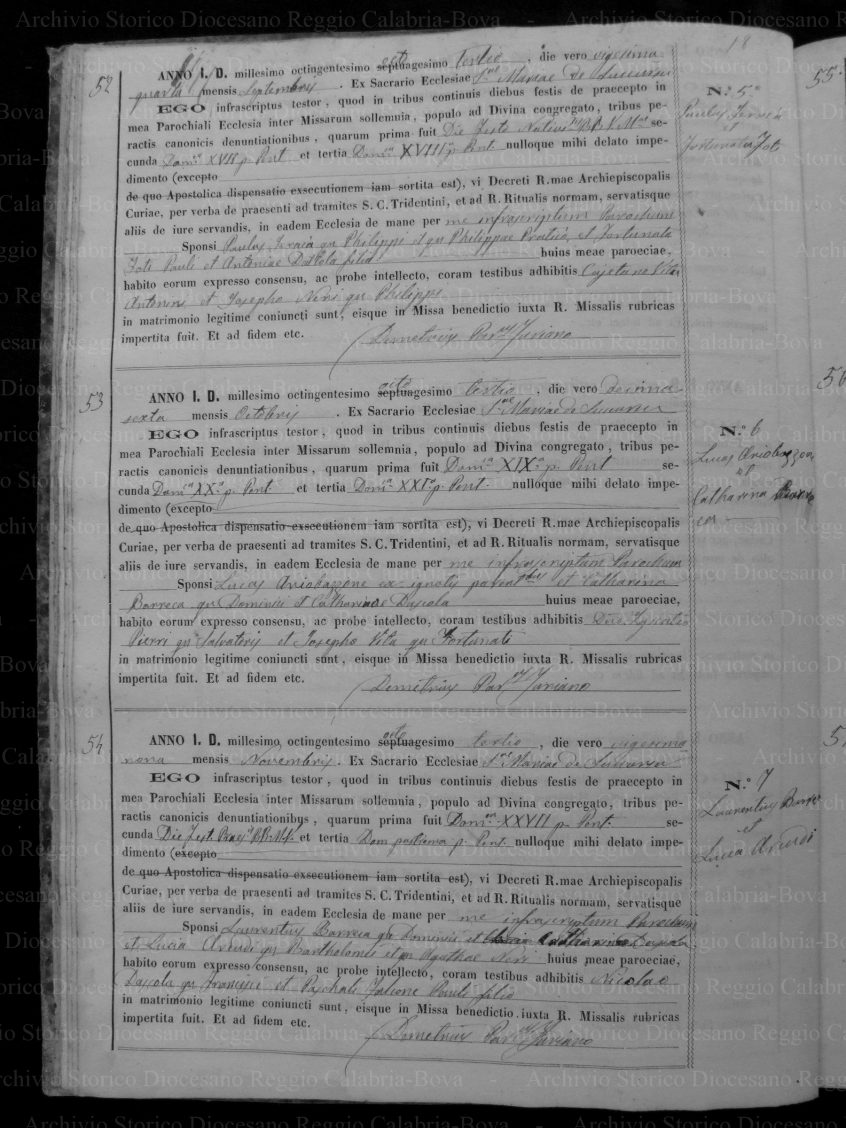 18
52
ANNO I. D. millesimo octingentesimo octuagesimo tertio, die vero vigesima
quarta mensis Septembris. Ex Sacrario Ecclesiae S.ae Mariae de Succursu
EGO infrascriptus testor, quod in tribus continuis diebus festis de praecepto in
mea Parochiali Ecclesia inter Missarum sollemnia, populo ad Divina congregato, tribus pe-
ractis canonicis denuntiationibus, quarum prima fuit Die Festo Nativ. B. V. M. se-
cunda Dom.ca XVII p. Pent. et tertia Dom.ca XVIII p. Pent. nulloque mihi delato impe-
dimento (excepto
de quo Apostolica dispensatio exsecutionem iam sortita est), vi Decreti R.mae Archiepiscopalis
Curiae, per verba de praesenti ad tramites S. C. Tridentini, et ad R. Ritualis normam, servatisque
aliis de iure servandis, in eadem Ecclesia de mane per me infrascriptum Parochum
Sponsi Paulus qu Philippi et qu Philippae et Fortunata
Foti Pauli et Antoniae filia huius meae paroeciae,
habito eorum expresso consensu, ac probe intellecto, coram testibus adhibitis Cajetano Vita
Antonini et Josepho Neri qu Philippi
in matrimonio legitime coniuncti sunt, eisque in Missa benedictio iuxta R. Missalis rubricas
impertita fuit. Et ad fidem etc.
Demetrius Par. Iuriano
N.º 5.º
Paulus
et
Fortunata Foti
53
ANNO I. D. millesimo octingentesimo octuagesimo tertio, die vero decima
sexta mensis Octobris. Ex Sacrario Ecclesiae S.ae Mariae de Succursu
EGO infrascriptus testor, quod in tribus continuis diebus festis de praecepto in
mea Parochiali Ecclesia inter Missarum sollemnia, populo ad Divina congregato, tribus pe-
ractis canonicis denuntiationibus, quarum prima fuit Dom.ca XIX.a p. Pent se-
cunda Dom.ca XX.a p. Pent. et tertia Dom.ca XXI.a p. Pent. nulloque mihi delato impe-
dimento (excepto
de quo Apostolica dispensatio exsecutionem iam sortita est), vi Decreti R.mae Archiepiscopalis
Curiae, per verba de praesenti ad tramites S. C. Tridentini, et ad R. Ritualis normam, servatisque
aliis de iure servandis, in eadem Ecclesia de mane per me infrascriptum Parochum
Sponsi Lucas Ariobazzone ex ignotis parentibus et Catharina
Barreca qu Dominici et Catharinae Dascola huius meae paroeciae,
habito eorum expresso consensu, ac probe intellecto, coram testibus adhibitis
Pierri qu Salvatoris et Josepho Vita qu Fortunati
in matrimonio legitime coniuncti sunt, eisque in Missa benedictio iuxta R. Missalis rubricas
impertita fuit. Et ad fidem etc.
Demetrius Par. Iuriano
N.º 6
Lucas Ariobazzone
et
Catharina
54
ANNO I. D. millesimo octingentesimo octuagesimo tertio, die vero vigesima
nona mensis Novembris. Ex Sacrario Ecclesiae S.ae Mariae de Succursu
EGO infrascriptus testor, quod in tribus continuis diebus festis de praecepto in
mea Parochiali Ecclesia inter Missarum sollemnia, populo ad Divina congregato, tribus pe-
ractis canonicis denuntiationibus, quarum prima fuit Dom.ca XXVII p. Pent. se-
cunda Die Festo Praes. B. M. V. et tertia Dom postrema p. Pent. nulloque mihi delato impe-
dimento (excepto
de quo Apostolica dispensatio exsecutionem iam sortita est), vi Decreti R.mae Archiepiscopalis
Curiae, per verba de praesenti ad tramites S. C. Tridentini, et ad R. Ritualis normam, servatisque
aliis de iure servandis, in eadem Ecclesia de mane per me infrascriptum Parochum
Sponsi Laurentius Barreca qu Dominici et Catharinae Dascola
et Lucia qu Bartholomei et qu Agathae Neri huius meae paroeciae,
habito eorum expresso consensu, ac probe intellecto, coram testibus adhibitis Nicolao
Dascola qu Francisci et Paschali Pauli filio
in matrimonio legitime coniuncti sunt, eisque in Missa benedictio iuxta R. Missalis rubricas
impertita fuit. Et ad fidem etc.
Demetrius Par. Iuriano
N.º 7
Laurentius Barreca
et
Lucia
55
Archivio Storico Diocesano Reggio Calabria-Bova